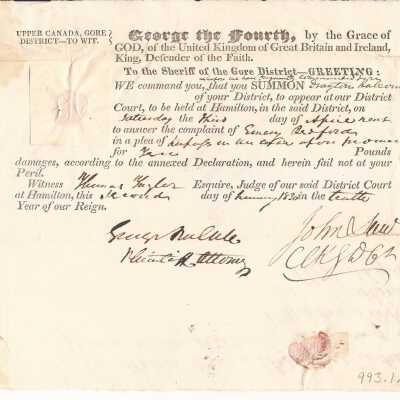 UPPER CANADA, GORE
DISTRICT—TO WIT.
George the Fourth, by the Grace of
GOD, of the United Kingdom of Great Britain and Ireland,
King, Defender of the Faith.
To the Sheriff of the Gore District—GREETING:
WE command you, that you SUMMON
of your District, to appear at our District
Court, to be held at Hamilton, in the said District, on
Saturday the third day of April next
to answer the complaint of Emery
in a plea of trespass on the case upon promises
for Pounds
damages, according to the annexed Declaration, and herein fail not at your
Peril.
Witness Thomas Taylor Esquire, Judge of our said District Court
at Hamilton, this Second day of January 1830 in the tenth
Year of our Reign.
George
Plaintiff Attorney
John Law
Clk G D Ct
993.1